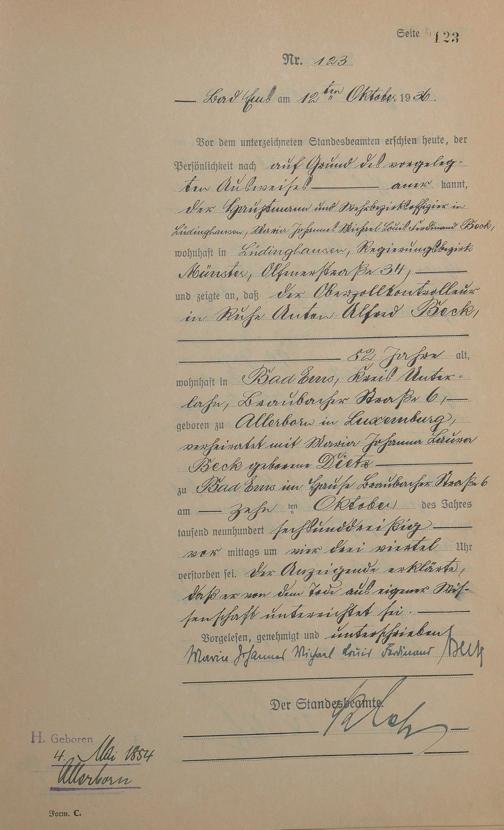 Seite 123
Nr. 123
Bad Ems am 12ten Oktober 1936.
Vor dem unterzeichneten Standesbeamten erschien heute, der
Persönlichkeit nach auf Grund des vorgeleg-
ten Ausweises anerkannt,
der Hauptmann und Wehrbezirksoffizier in
Lüdinghausen, Maria Johannes Michael Louis Ferdinand Beck,
wohnhaft in Lüdinghausen, Regierungsbezirk
Münster, Olfenerstraße 34,
und zeigte an, daß der Oberzollkontrolleur
in Ruhe Anton Alfred Beck,
82 Jahre alt,
wohnhaft in Bad Ems, Kreis Unter-
lahn, Braubacher Straße 6,
geboren zu Allerborn in Luxemburg,
verheiratet mit Maria Johanna Laura
Beck geborene Dietz
zu Bad Ems im Hause Braubacher Straße 6
am zehnten Oktober des Jahres
tausend neunhundert sechsunddreißig
vor mittags um vier drei viertel Uhr
verstorben sei. Der Anzeigende erklärte,
daß er von dem Tode aus eigener Wis-
senschaft unterrichtet sei.
Vorgelesen, genehmigt und unterschrieben
Maria Johannes Michael Louis Ferdinand Beck
Der Standesbeamte.
H. Geboren
4. Mai 1854
Allerborn
Form. C.